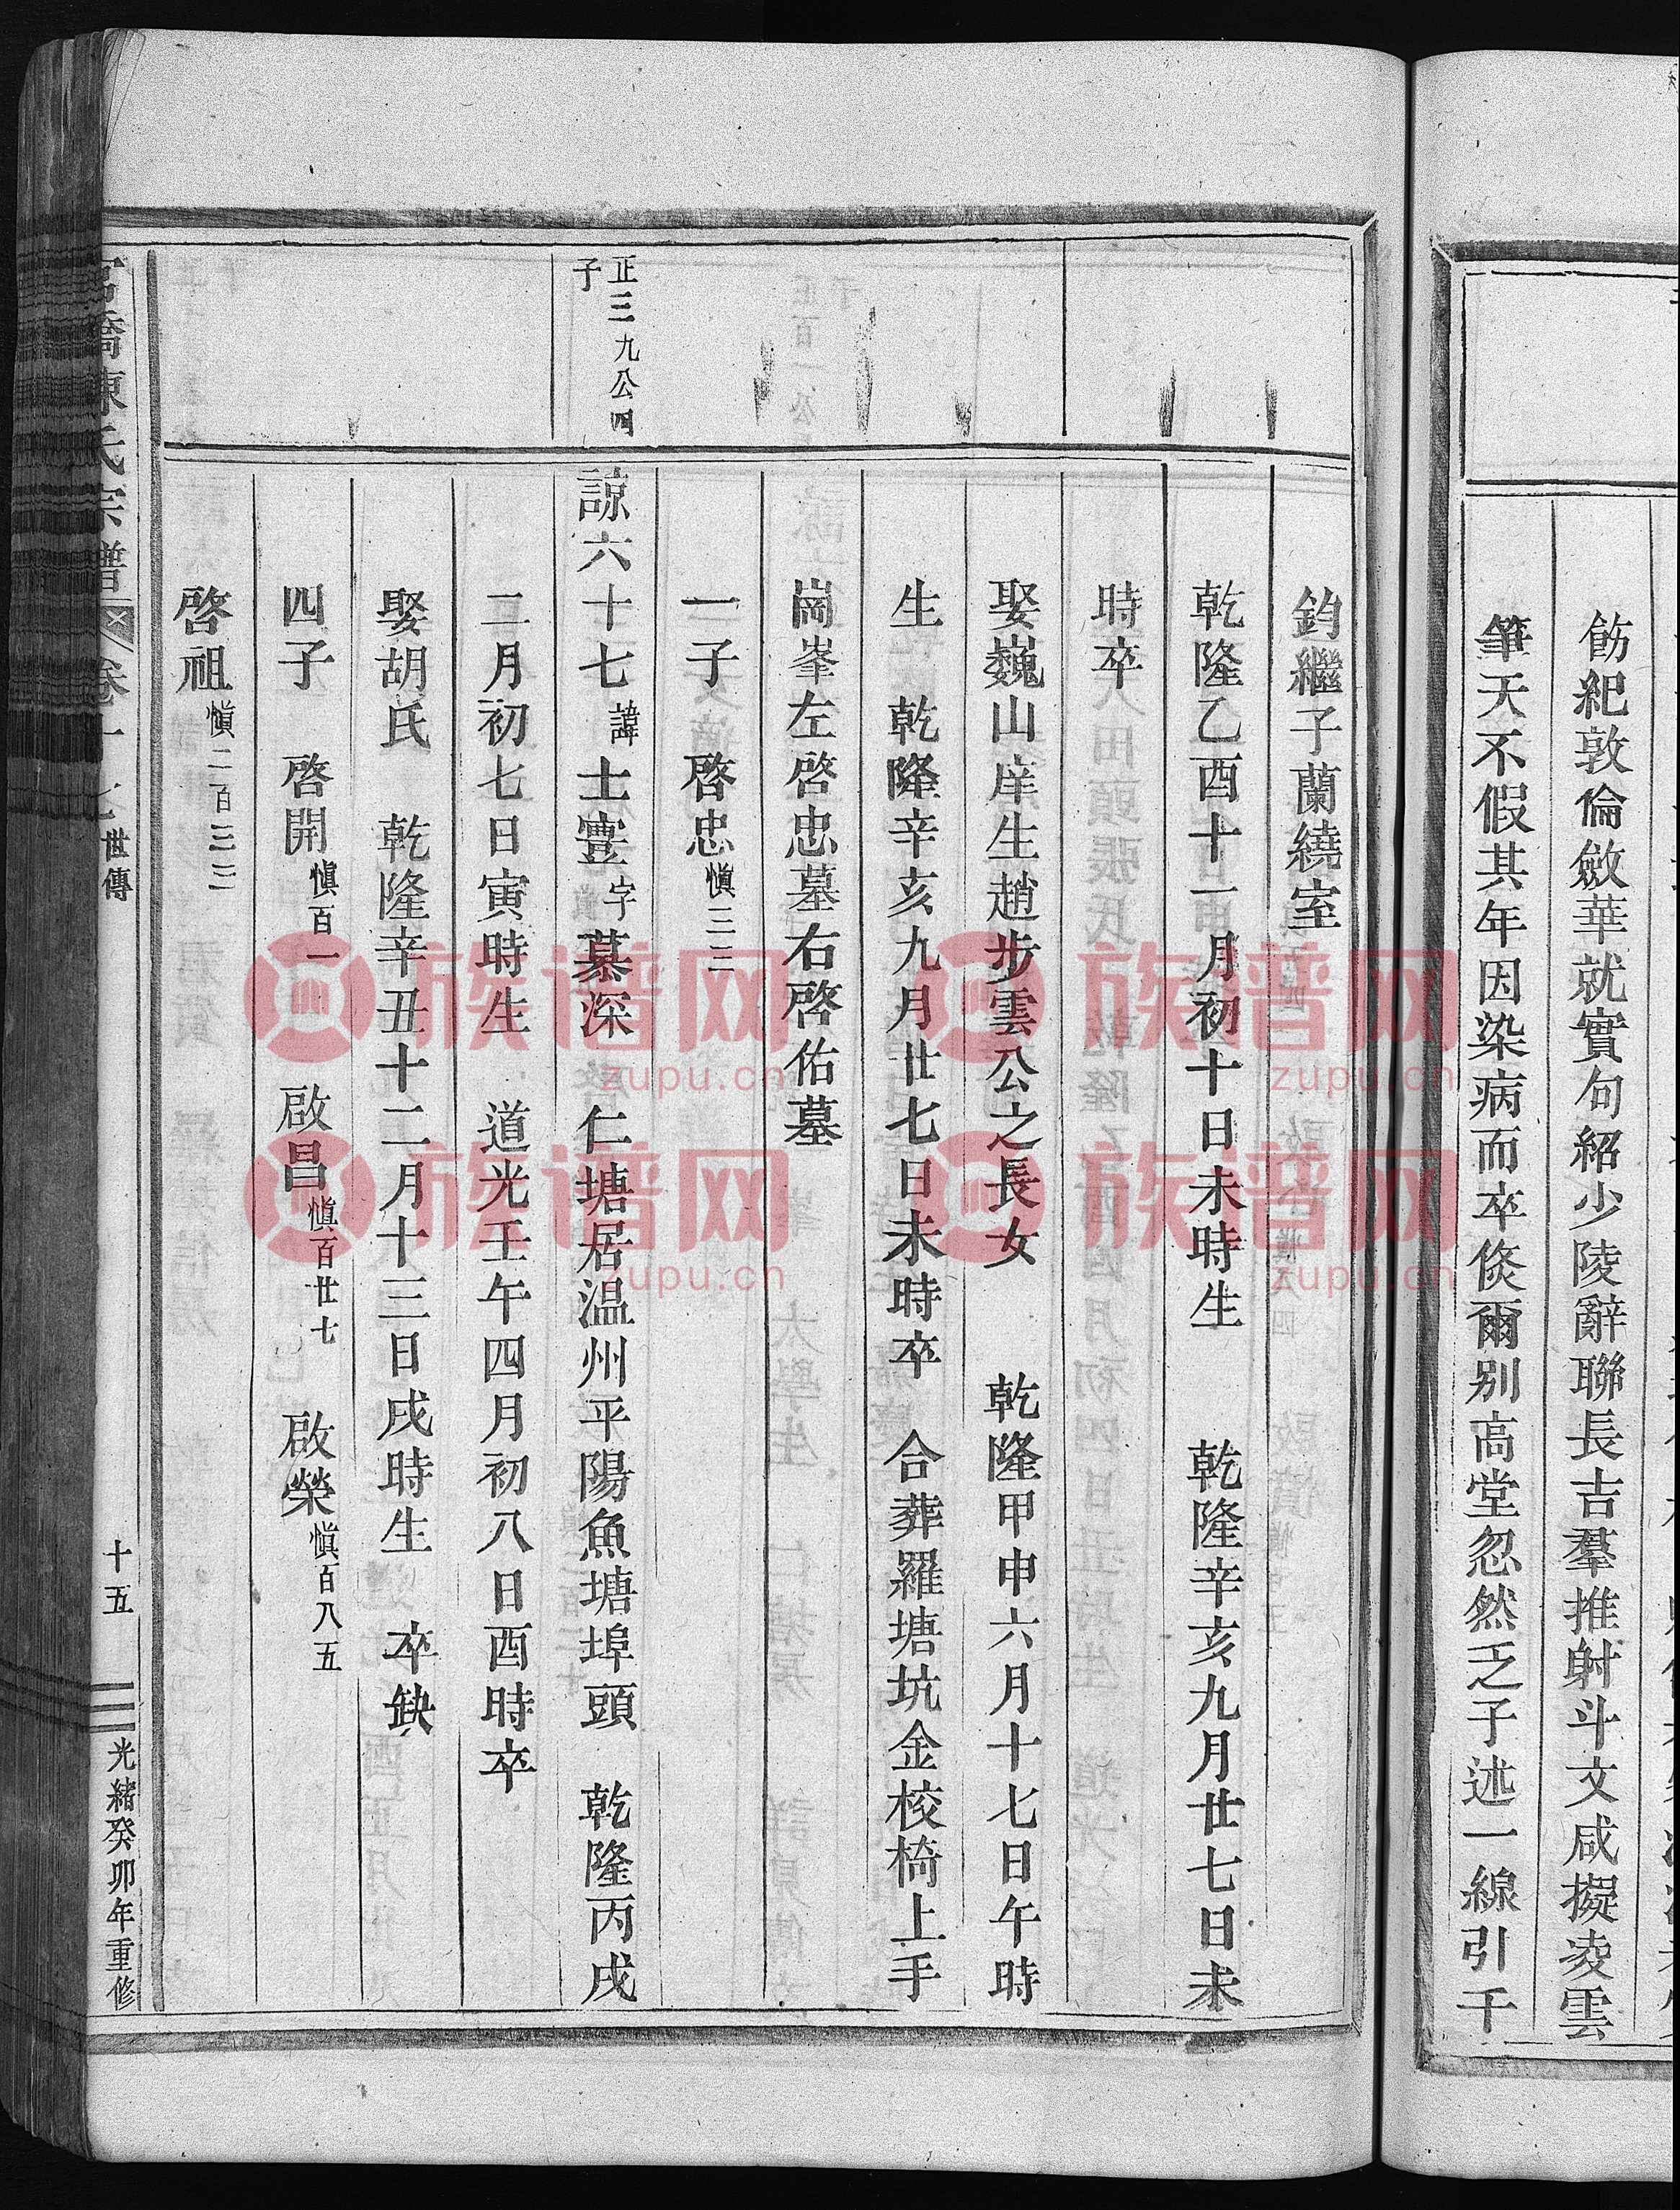 飭紀敦倫斂華就實句紹少陵辭聯長吉羣推射斗文咸擬凌雲
筆天不假其年因染病而卒倐爾别高堂忽然乏子述一線引千
鈞繼子蘭繞室
乾隆乙酉十一月初十日未時生　乾隆辛亥九月廿七日未
時卒
娶巍山庠生趙步雲公之長女　乾隆甲申六月十七日午時
生　乾隆辛亥九月廿七日未時卒　合葬羅塘坑金校椅上手
崗峯左啓忠墓右啓佑墓
一子　啓忠慎三二
正三九公四子
諒六十七諱士寷字慕深　仁塘居温州平陽魚塘埠頭　乾隆丙戌
二月初七日寅時生　道光壬午四月初八日酉時卒
娶胡氏　乾隆辛丑十二月十三日戌時生　卒缺
四子　啓開慎百一　啟昌慎百廿七　啟榮慎百八五
啓祖慎二百三三
陳氏宗譜　卷十七　世傳　十五　光緒癸卯年重修
族谱网
zupu.cn
族谱网
zupu.cn
族谱网
zupu.cn
族谱网
zupu.cn